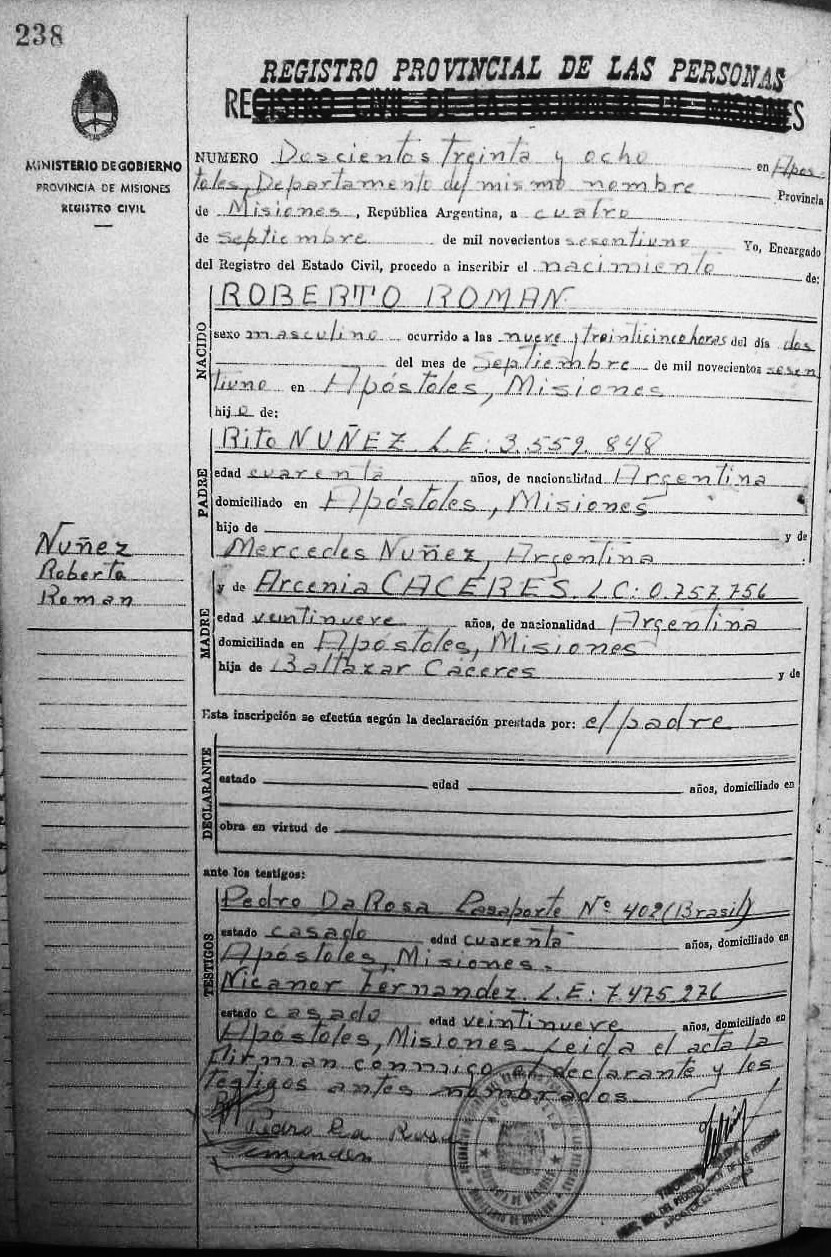 238
MINISTERIO DE GOBIERNO
PROVINCIA DE MISIONES
REGISTRO CIVIL
Nuñez
Roberto
Roman
REGISTRO PROVINCIAL DE LAS PERSONAS
REGISTRO CIVIL DE LA PROVINCIA DE MISIONES
NUMERO Doscientos treinta y ocho en Após-
toles, Departamento del mismo nombre Provincia
de Misiones, República Argentina, a cuatro
de septiembre de mil novecientos sesentiuno Yo, Encargado
del Registro del Estado Civil, procedo a inscribir el nacimiento de:
NACIDO
ROBERTO ROMAN
sexo masculino ocurrido a las nueve y treinticinco horas del día dos
del mes de Septiembre de mil novecientos sesen
tiuno en Apóstoles, Misiones
hijo de:
PADRE
Rito NUÑEZ L.E: 3.559.848
edad cuarenta años, de nacionalidad Argentina
domiciliado en Apóstoles, Misiones
hijo de y de
Mercedes Nuñez, Argentina
MADRE
y de Arcenia CACERES. L.C: 0.757.756
edad veintinueve años, de nacionalidad Argentina
domiciliada en Apóstoles, Misiones
hija de Baltazar Cáceres y de
Esta inscripción se efectúa según la declaración prestada por: el padre
DECLARANTE
estado edad años, domiciliado en
obra en virtud de
ante los testigos:
TESTIGOS
Pedro DaRosa Pasaporte Nº 402 (Brasil)
estado casado edad cuarenta años, domiciliado en
Apóstoles, Misiones.
Nicanor Fernandez. L.E: 7.475.276
estado casado edad veintinueve años, domiciliado en
Apóstoles, Misiones. Leida el acta la
firman conmigo el declarante y los
testigos antes nombrados.
Pedro la Rosa